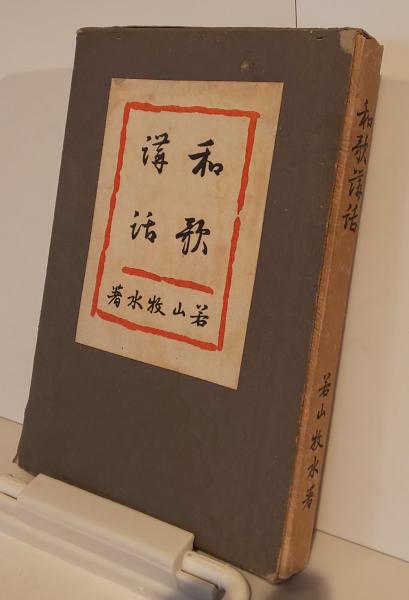 和歌
講話
若山牧水著
和歌講話
若山牧水著